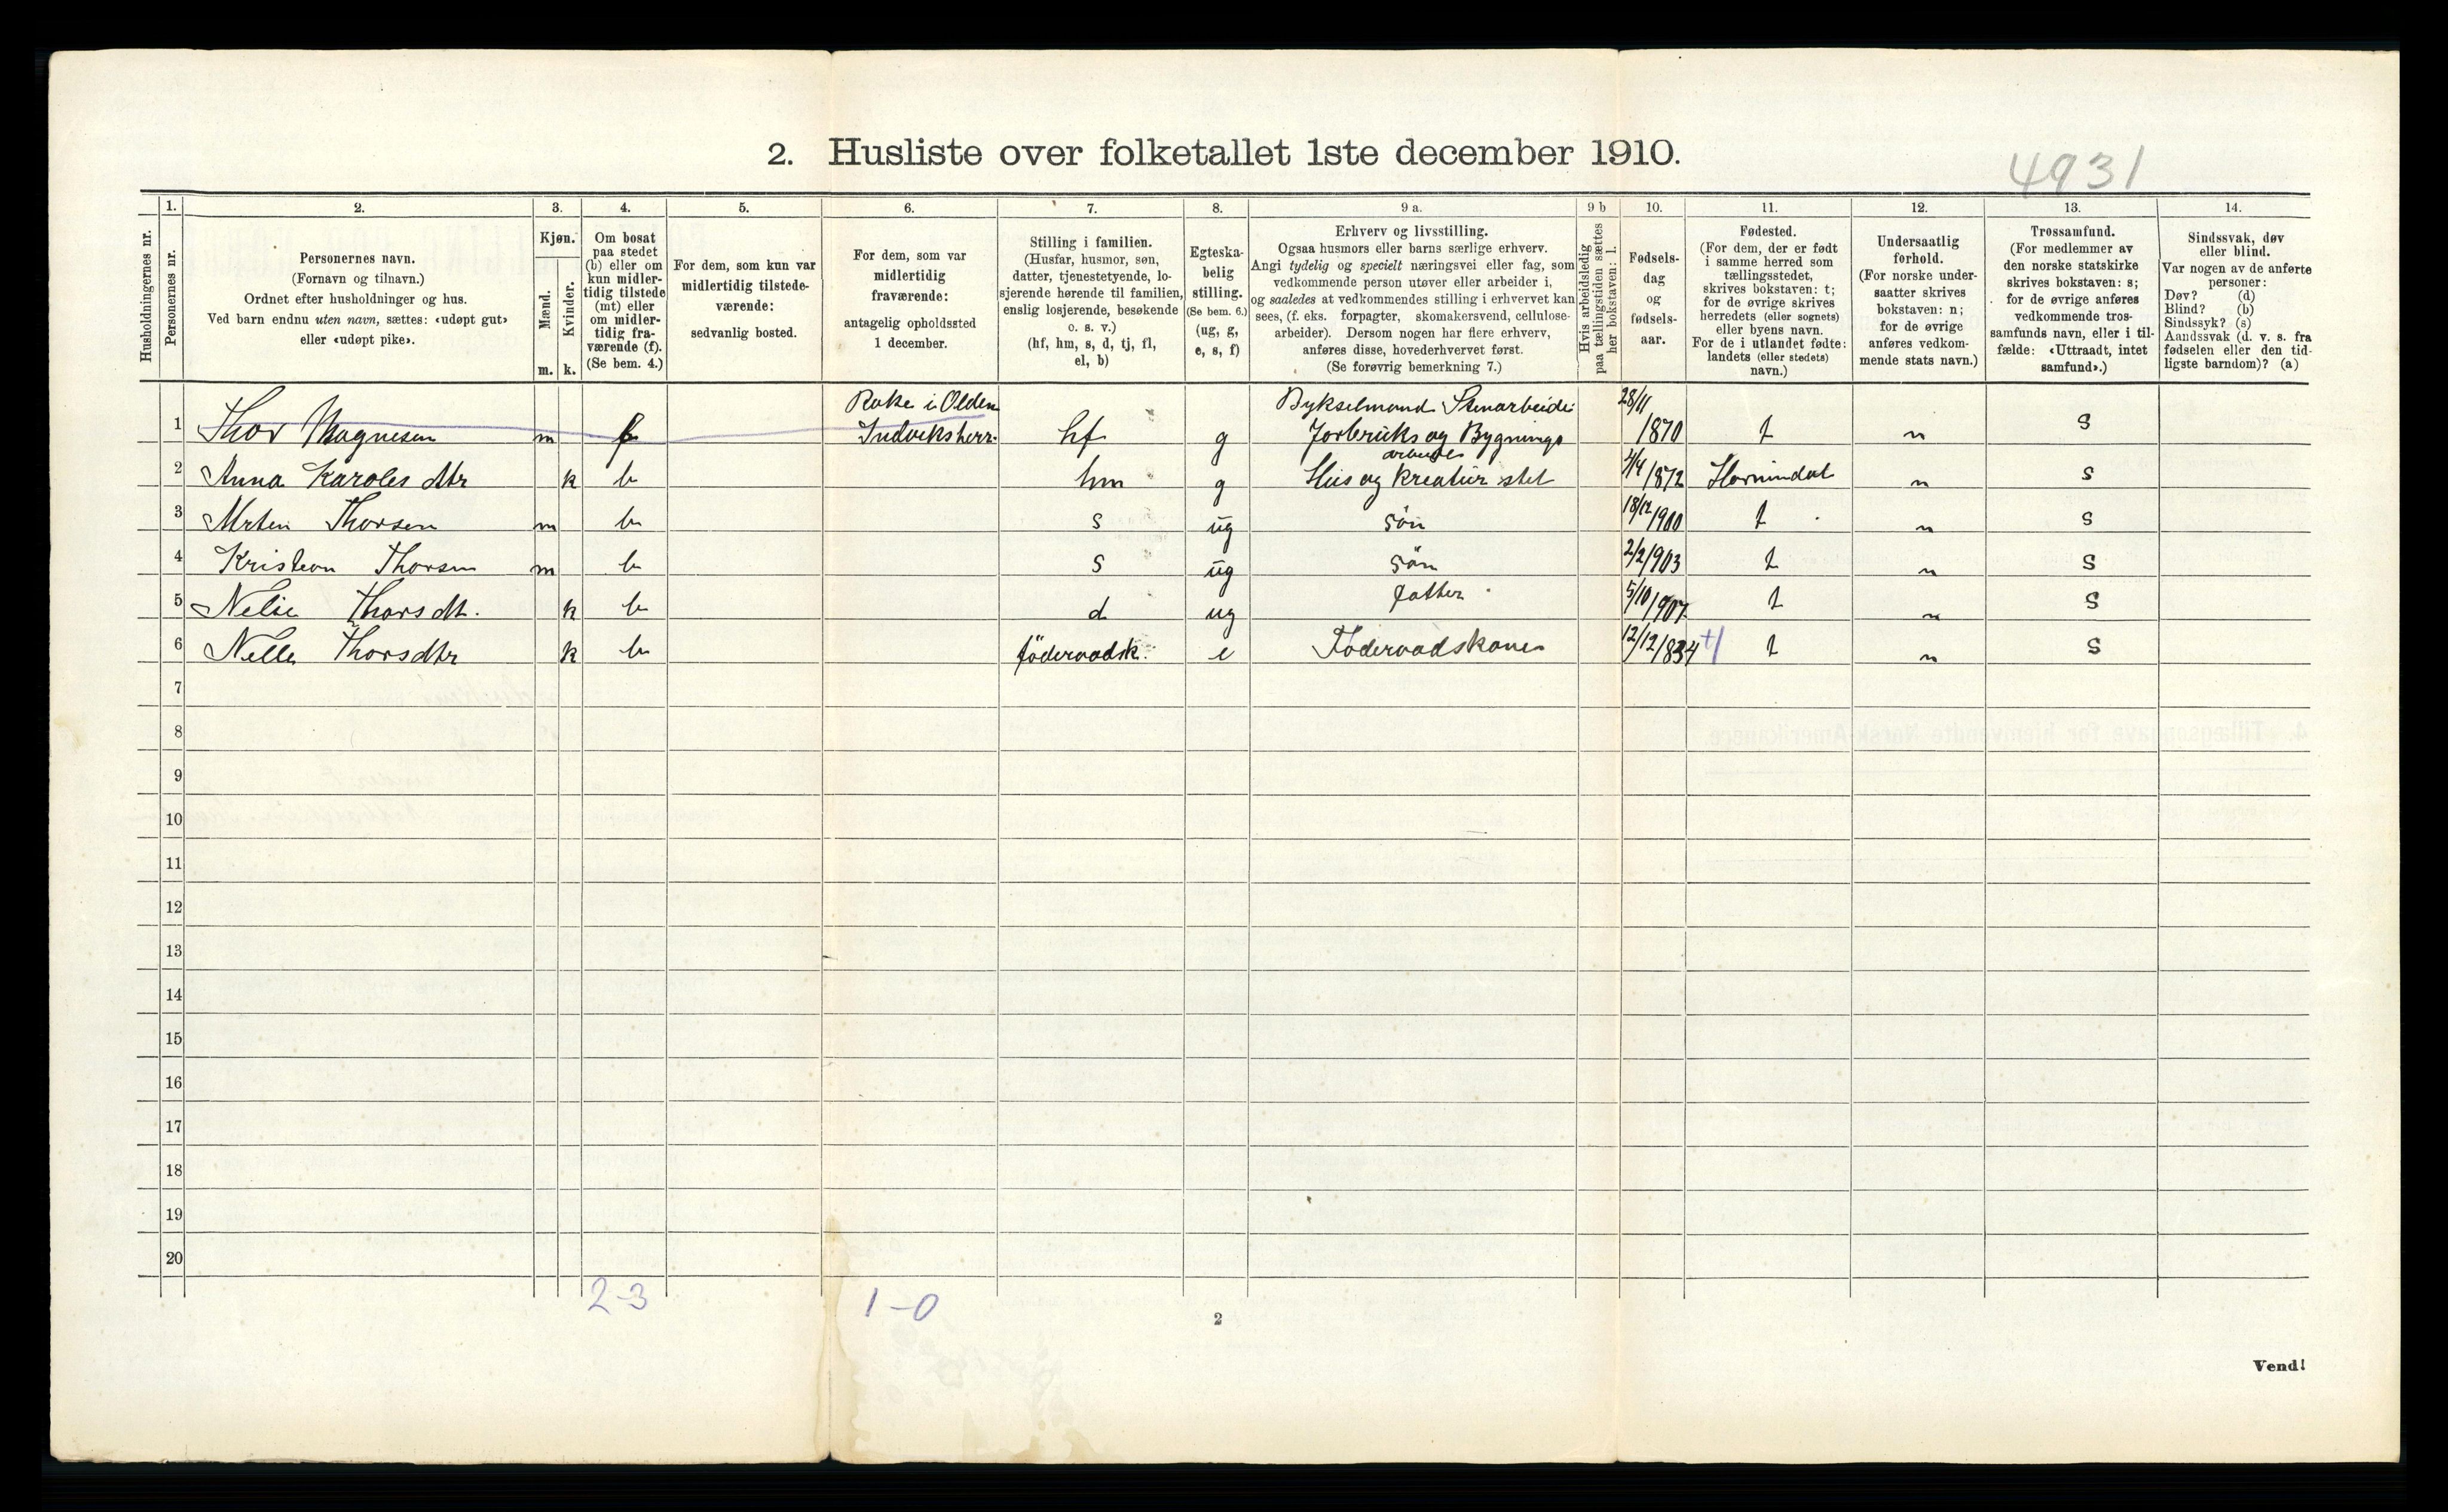 2. Husliste over folketallet 1ste december 1910.
4931
Husholdningernes nr.
1.
Personernes nr.
2.
Personernes navn.
(Fornavn og tilnavn.)
Ordnet efter husholdninger og hus.
Ved barn endnu uten navn, sættes: «udøpt gut»
eller «udøpt pike».
3.
Kjøn.
Mænd.
Kvinder.
m. k.
4.
Om bosat
paa stedet
(b) eller om
kun midler-
tidig tilstede
(mt) eller
om midler-
tidig fra-
værende (f).
(Se bem. 4.)
5.
For dem, som kun var
midlertidig tilstede-
værende:
sedvanlig bosted.
6.
For dem, som var
midlertidig
fraværende:
antagelig opholdssted
1 december.
7.
Stilling i familien.
(Husfar, husmor, søn,
datter, tjenestetyende, lo-
sjerende hørende til familien,
enslig losjerende, besøkende
o. s. v.)
(hf, hm, s, d, tj, fl,
el, b)
8.
Egteska-
belig
stilling.
(Se bem. 6.)
(ug, g,
e, s, f)
9 a.
Erhverv og livsstilling.
Ogsaa husmors eller barns særlige erhverv.
Angi tydelig og specielt næringsvei eller fag, som
vedkommende person utøver eller arbeider i,
og saaledes at vedkommendes stilling i erhvervet kan
sees, (f. eks. forpagter, skomakersvend, cellulose-
arbeider). Dersom nogen har flere erhverv,
anføres disse, hovederhvervet først.
(Se forøvrig bemerkning 7.)
9 b
Hvis arbeidsledig
paa tællingstiden sættes
her bokstaven: l.
10.
Fødsels-
dag
og
fødsels-
aar.
11.
Fødested.
(For dem, der er født
i samme herred som
tællingsstedet,
skrives bokstaven: t;
for de øvrige skrives
herredets (eller sognets)
eller byens navn.
For de i utlandet fødte:
landets (eller stedets)
navn.)
12.
Undersaatlig
forhold.
(For norske under-
saatter skrives
bokstaven: n;
for de øvrige
anføres vedkom-
mende stats navn.)
13.
Trossamfund.
(For medlemmer av
den norske statskirke
skrives bokstaven: s;
for de øvrige anføres
vedkommende tros-
samfunds navn, eller i til-
fælde: «Uttraadt, intet
samfund».)
14.
Sindssvak, døv
eller blind.
Var nogen av de anførte
personer:
Døv? (d)
Blind? (b)
Sindssyk? (s)
Aandssvak (d. v. s. fra
fødselen eller den tid-
ligste barndom)? (a)
1 Thor Magnesen m f i Olden Indviksherr. hf g Bykselmand Stenarbeide Jorbruks og Bygnings arbeider 28/11 1870 t n s
2 Anna Karoles dtr k b hm g Hus og Kreatur stel 4/4 1872 Hornindal n s
3 Mrten Thorsen m b s ug søn 18/12 1900 t n s
4 Kristian Thorsen m b s ug søn 2/2 1903 t n s
5 Nelie Thorsdt. k b d ug 5/10 1907 t n s
6 Nelle Thorsdtr k b föderaadsk. e Föderaadskone 12/12/1834 t n s
7
8
9
10
11
12
13
14
15
16
17
18
19
20
2-3
1-0
2
Vend!